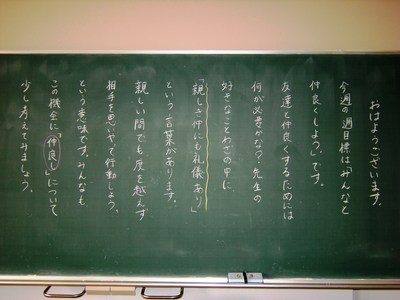 おはようございます。
今週の週目標は「みんなと
仲良くしよう」です。
友達と仲良くするためには
何が必要かな？先生の
好きなことわざの中に
「親しき仲にも礼儀あり」
という言葉があります。
親しい間でも度を越えず
相手を思いやって行動しよう、
という意味です。みんなも
この機会に「仲良し」について
少し考えてみましょう。